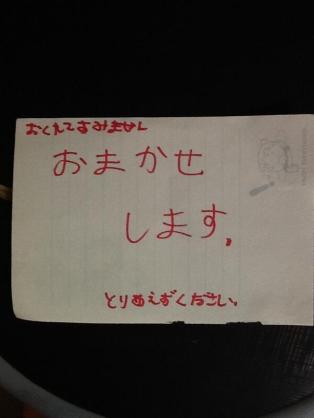 おくれてすみません
おまかせ
します。
とりあえずください。